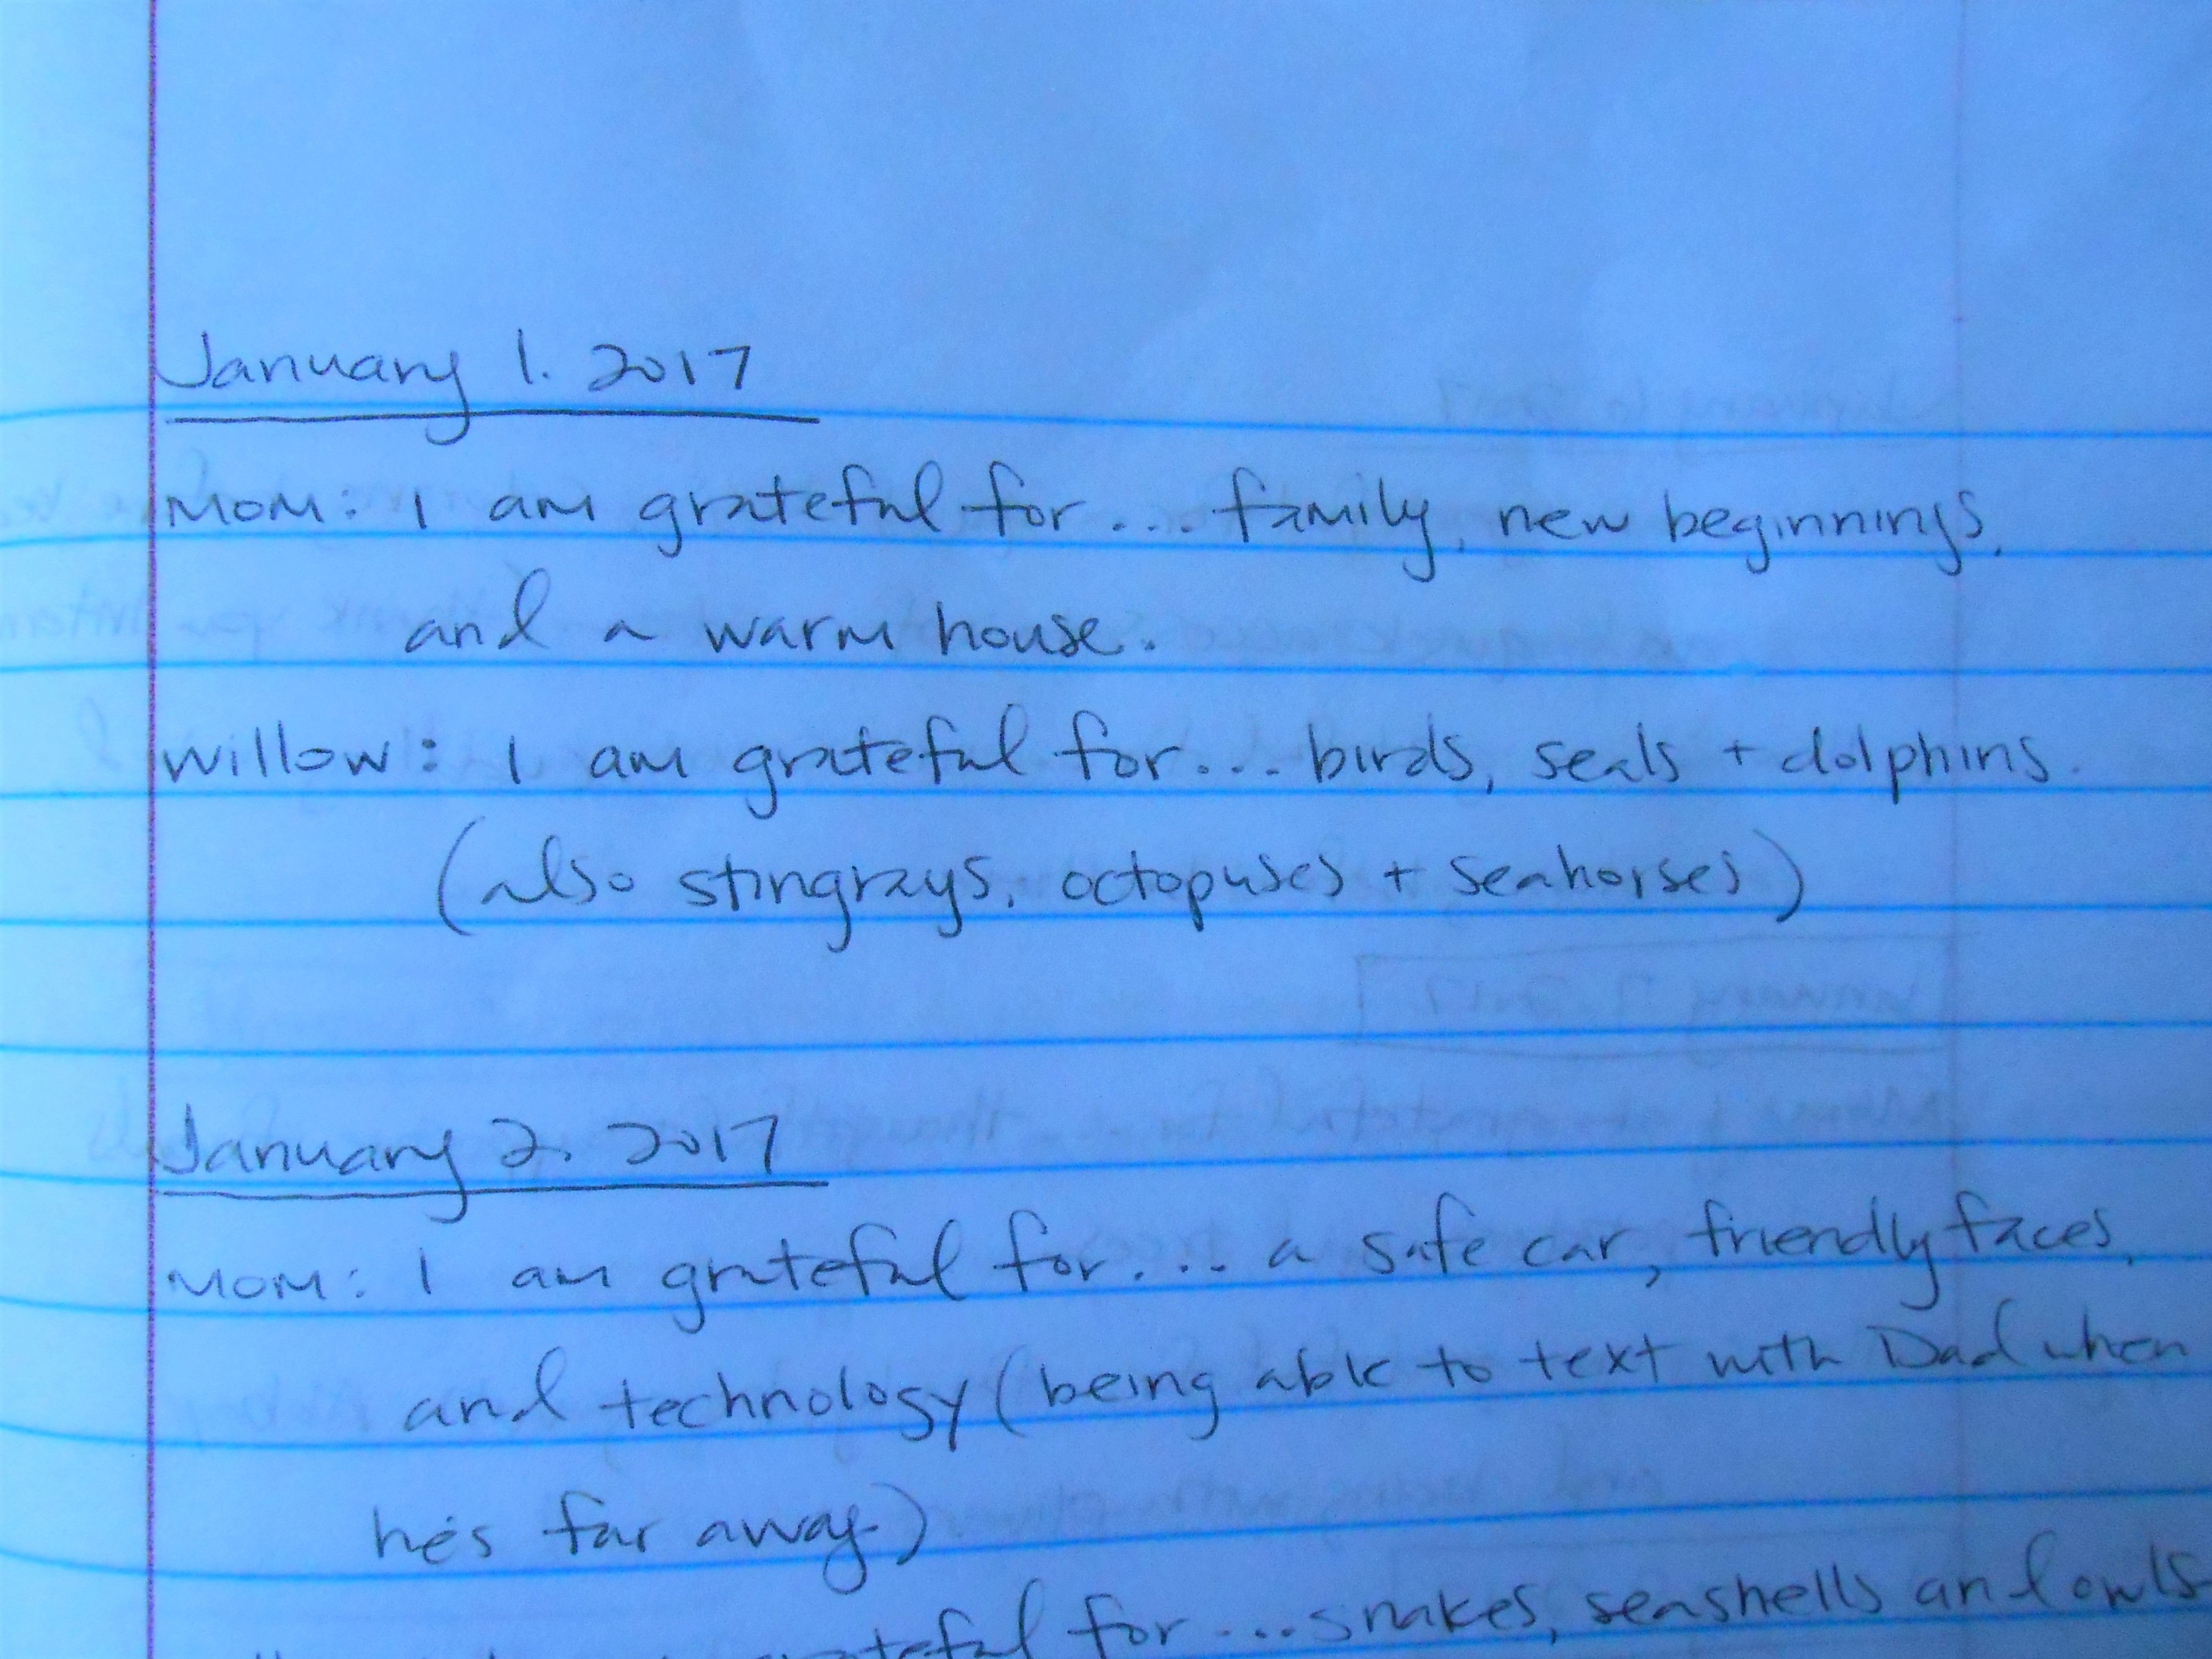 January 1. 2017
Mom: I am grateful for... family, new beginnings,
and a warm house.
Willow: I am grateful for... birds, seals + dolphins.
(also stingrays, octopuses + seahorses)
January 2, 2017
Mom: I am grateful for... a safe car, friendly faces,
and technology (being able to text with Dad when
he's far away)
grateful for...snakes, seashells and owls